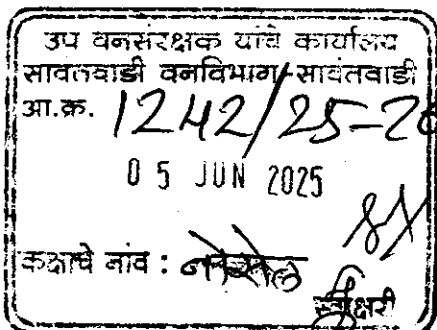 उप वनसंरक्षक यांचे कार्यालय
सावंतवाडी वनविभाग सावंतवाडी
आ.क्र. 1242/25-26
05 JUN 2025
कक्षाचे नांव :
स्वाक्षरी